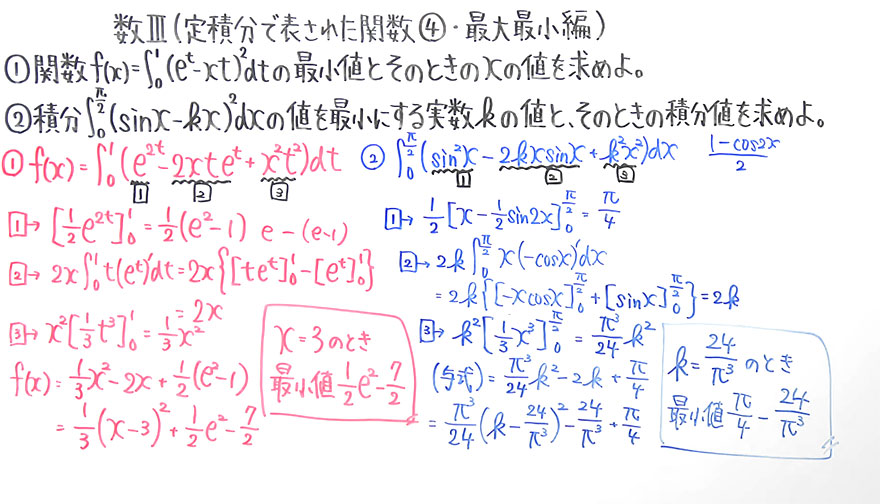 数Ⅲ(定積分で表された関数④・最大最小編)
①関数f(x)=∫₀¹(eᵗ-xt)²dtの最小値とそのときのxの値を求めよ。
②積分∫₀^{π/2}(sinx-kx)²dxの値を最小にする実数kの値と、そのときの積分値を求めよ。
① f(x)=∫₀¹(e²ᵗ-2xteᵗ+x²t²)dt
1 2 3
1→ [1/2 e²ᵗ]₀¹=1/2(e²-1) e-(e-1)
2→ 2x∫₀¹t(eᵗ)'dt=2x{[teᵗ]₀¹-[eᵗ]₀¹}
=2x
3→ x²[1/3 t³]₀¹=1/3 x²
f(x)=1/3 x²-2x+1/2(e²-1)
=1/3(x-3)²+1/2 e²-7/2
x=3のとき
最小値 1/2 e²-7/2
② ∫₀^{π/2}(sin²x-2kxsinx+k²x²)dx (1-cos2x)/2
1 2 3
1→ 1/2[x-1/2 sin2x]₀^{π/2}=π/4
2→ 2k∫₀^{π/2}x(-cosx)'dx
=2k{[-xcosx]₀^{π/2}+[sinx]₀^{π/2}}=2k
3→ k²[1/3 x³]₀^{π/2}=π³/24 k²
(与式)=π³/24 k²-2k+π/4
=π³/24(k-24/π³)²-24/π³+π/4
k=24/π³のとき
最小値 π/4-24/π³